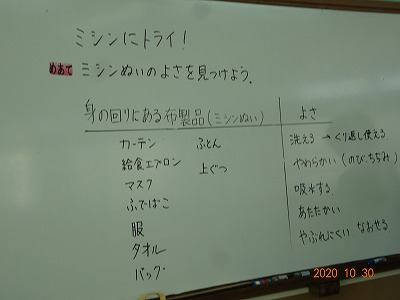 ミシンにトライ!
めあて ミシンぬいのよさを見つけよう。
身の回りにある布製品(ミシンぬい)
カーテン ふとん
給食エプロン 上ぐつ
マスク
ふでばこ
服
タオル
バッグ
よさ
洗える→くり返し使える
やわらかい(のび、ちぢみ)
吸水する
あたたかい
やぶれにくい なおせる
2020 10 30